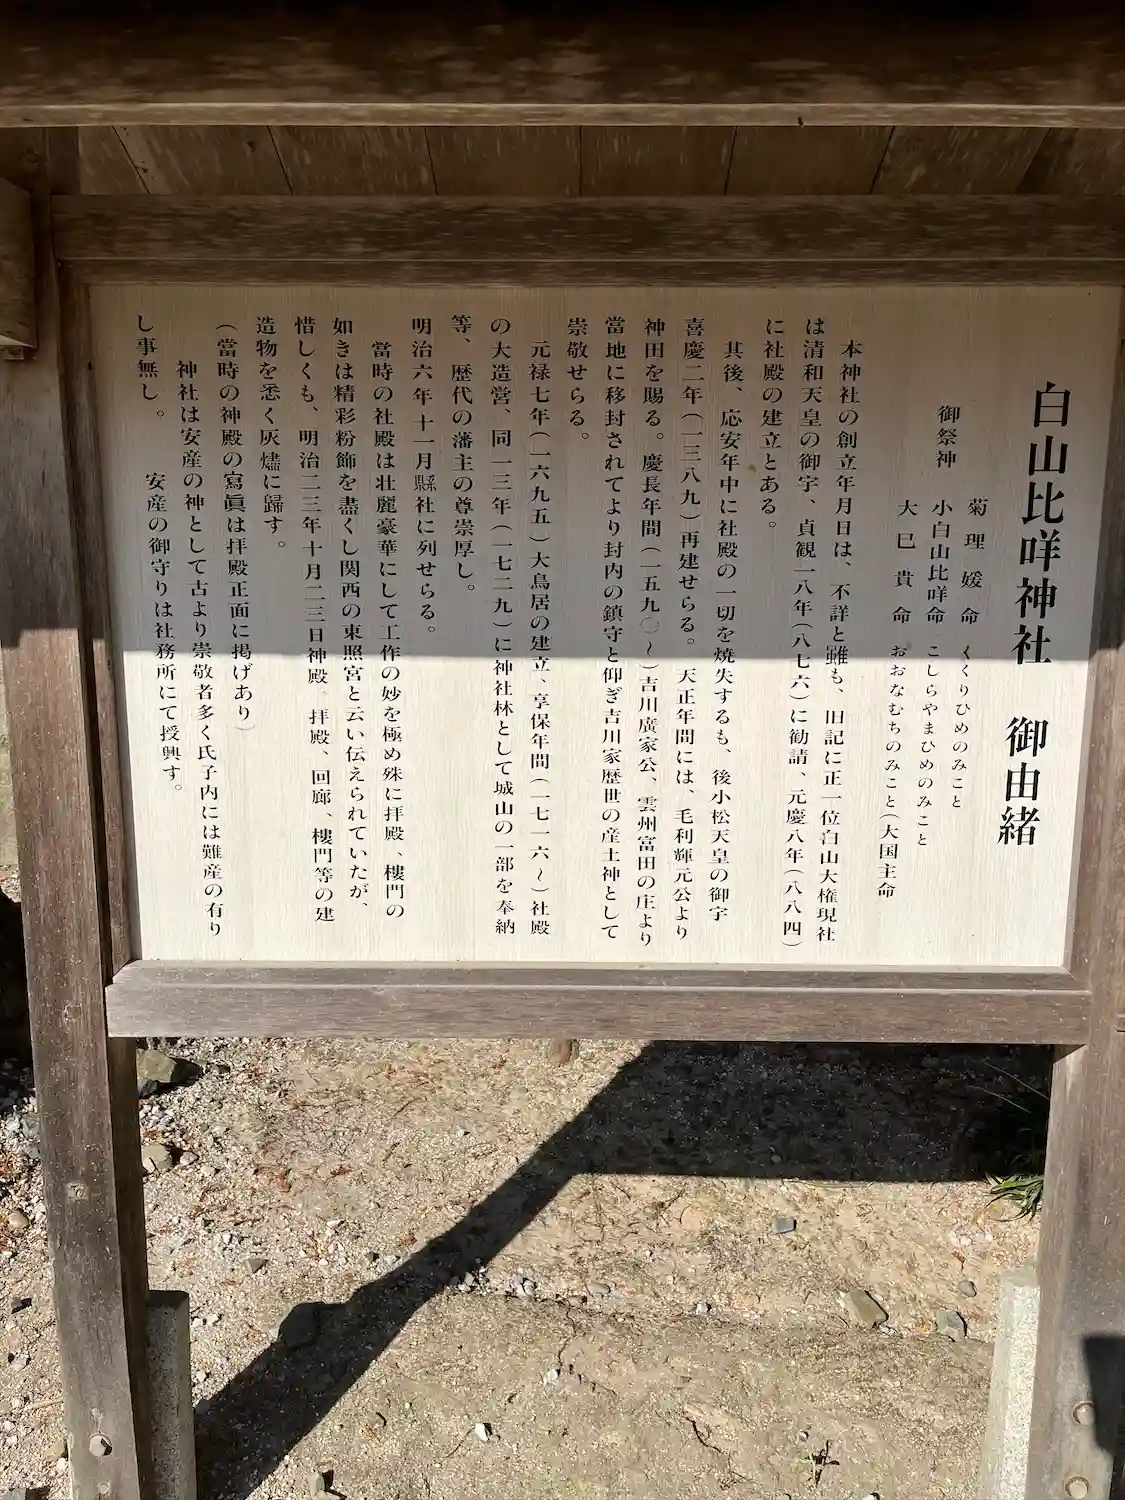 白山比咩神社　御由緒
御祭神
菊理媛命　くくりひめのみこと
小白山比咩命　こしらやまひめのみこと
大巳貴命　おおなむちのみこと(大国主命
本神社の創立年月日は、不詳と雖も、旧記に正一位白山大権現社
は清和天皇の御宇、貞観一八年(八七六)に勧請、元慶八年(八八四)
に社殿の建立とある。
其後、応安年中に社殿の一切を焼失するも、後小松天皇の御宇
喜慶二年(一三八九)再建せらる。天正年間には、毛利輝元公より
神田を賜る。慶長年間(一五九〇～)吉川廣家公、雲州富田の庄より
當地に移封されてより封内の鎮守と仰ぎ吉川家歴世の産土神として
崇敬せらる。
元禄七年(一六九五)大鳥居の建立、享保年間(一七一六～)社殿
の大造営、同一三年(一七二九)に神社林として城山の一部を奉納
等、歴代の藩主の尊崇厚し。
明治六年十一月縣社に列せらる。
當時の社殿は壮麗豪華にして工作の妙を極め殊に拝殿、樓門の
如きは精彩粉飾を盡くし関西の東照宮と云い伝えられていたが、
惜しくも、明治二三年十月二三日神殿、拝殿、回廊、樓門等の建
造物を悉く灰燼に歸す。
(當時の神殿の寫眞は拝殿正面に掲げあり)
神社は安産の神として古より崇敬者多く氏子内には難産の有り
し事無し。　安産の御守りは社務所にて授興す。